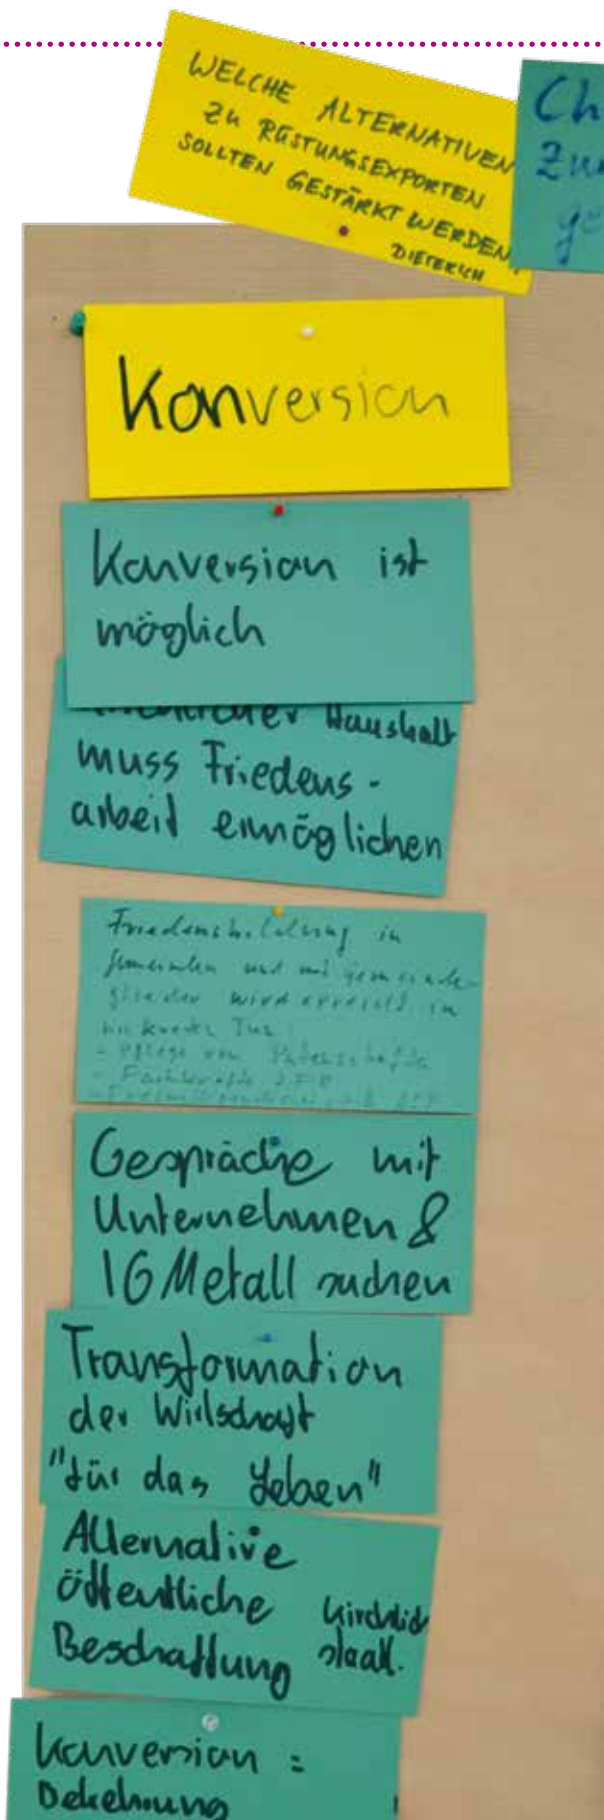 WELCHE ALTERNATIVEN
ZU RÜSTUNGSEXPORTEN
SOLLTEN GESTÄRKT WERDEN?
DIETERICH
Ch
Zu
ge
Konversion
Konversion ist
möglich
Haushalt
muss Friedens-
arbeit ermöglichen
Friedensbildung in
Gemeinden und mit Gemeinde-
glieder wird erreicht in
konkreten Tun
- Pflege von Patenschaften
- Fachkräfte ZFD
Gespräche mit
Unternehmen &
IG Metall suchen
Transformation
der Wirtschaft
"für das Leben"
Alternative
öffentliche kirchlich
Beschaffung staatl.
Konversion =
Bekehrung